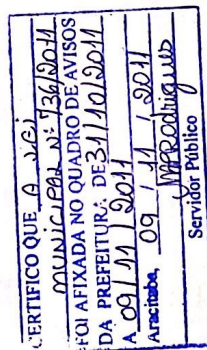 CERTIFICO QUE A LEI
MUNICIPAL Nº 736/2011
FOI AFIXADA NO QUADRO DE AVISOS
DA PREFEITURA DE 31/10/2011
A 09/11/2011
Aracitaba, 09 / 11 / 2011
MARodrigues
Servidor Público